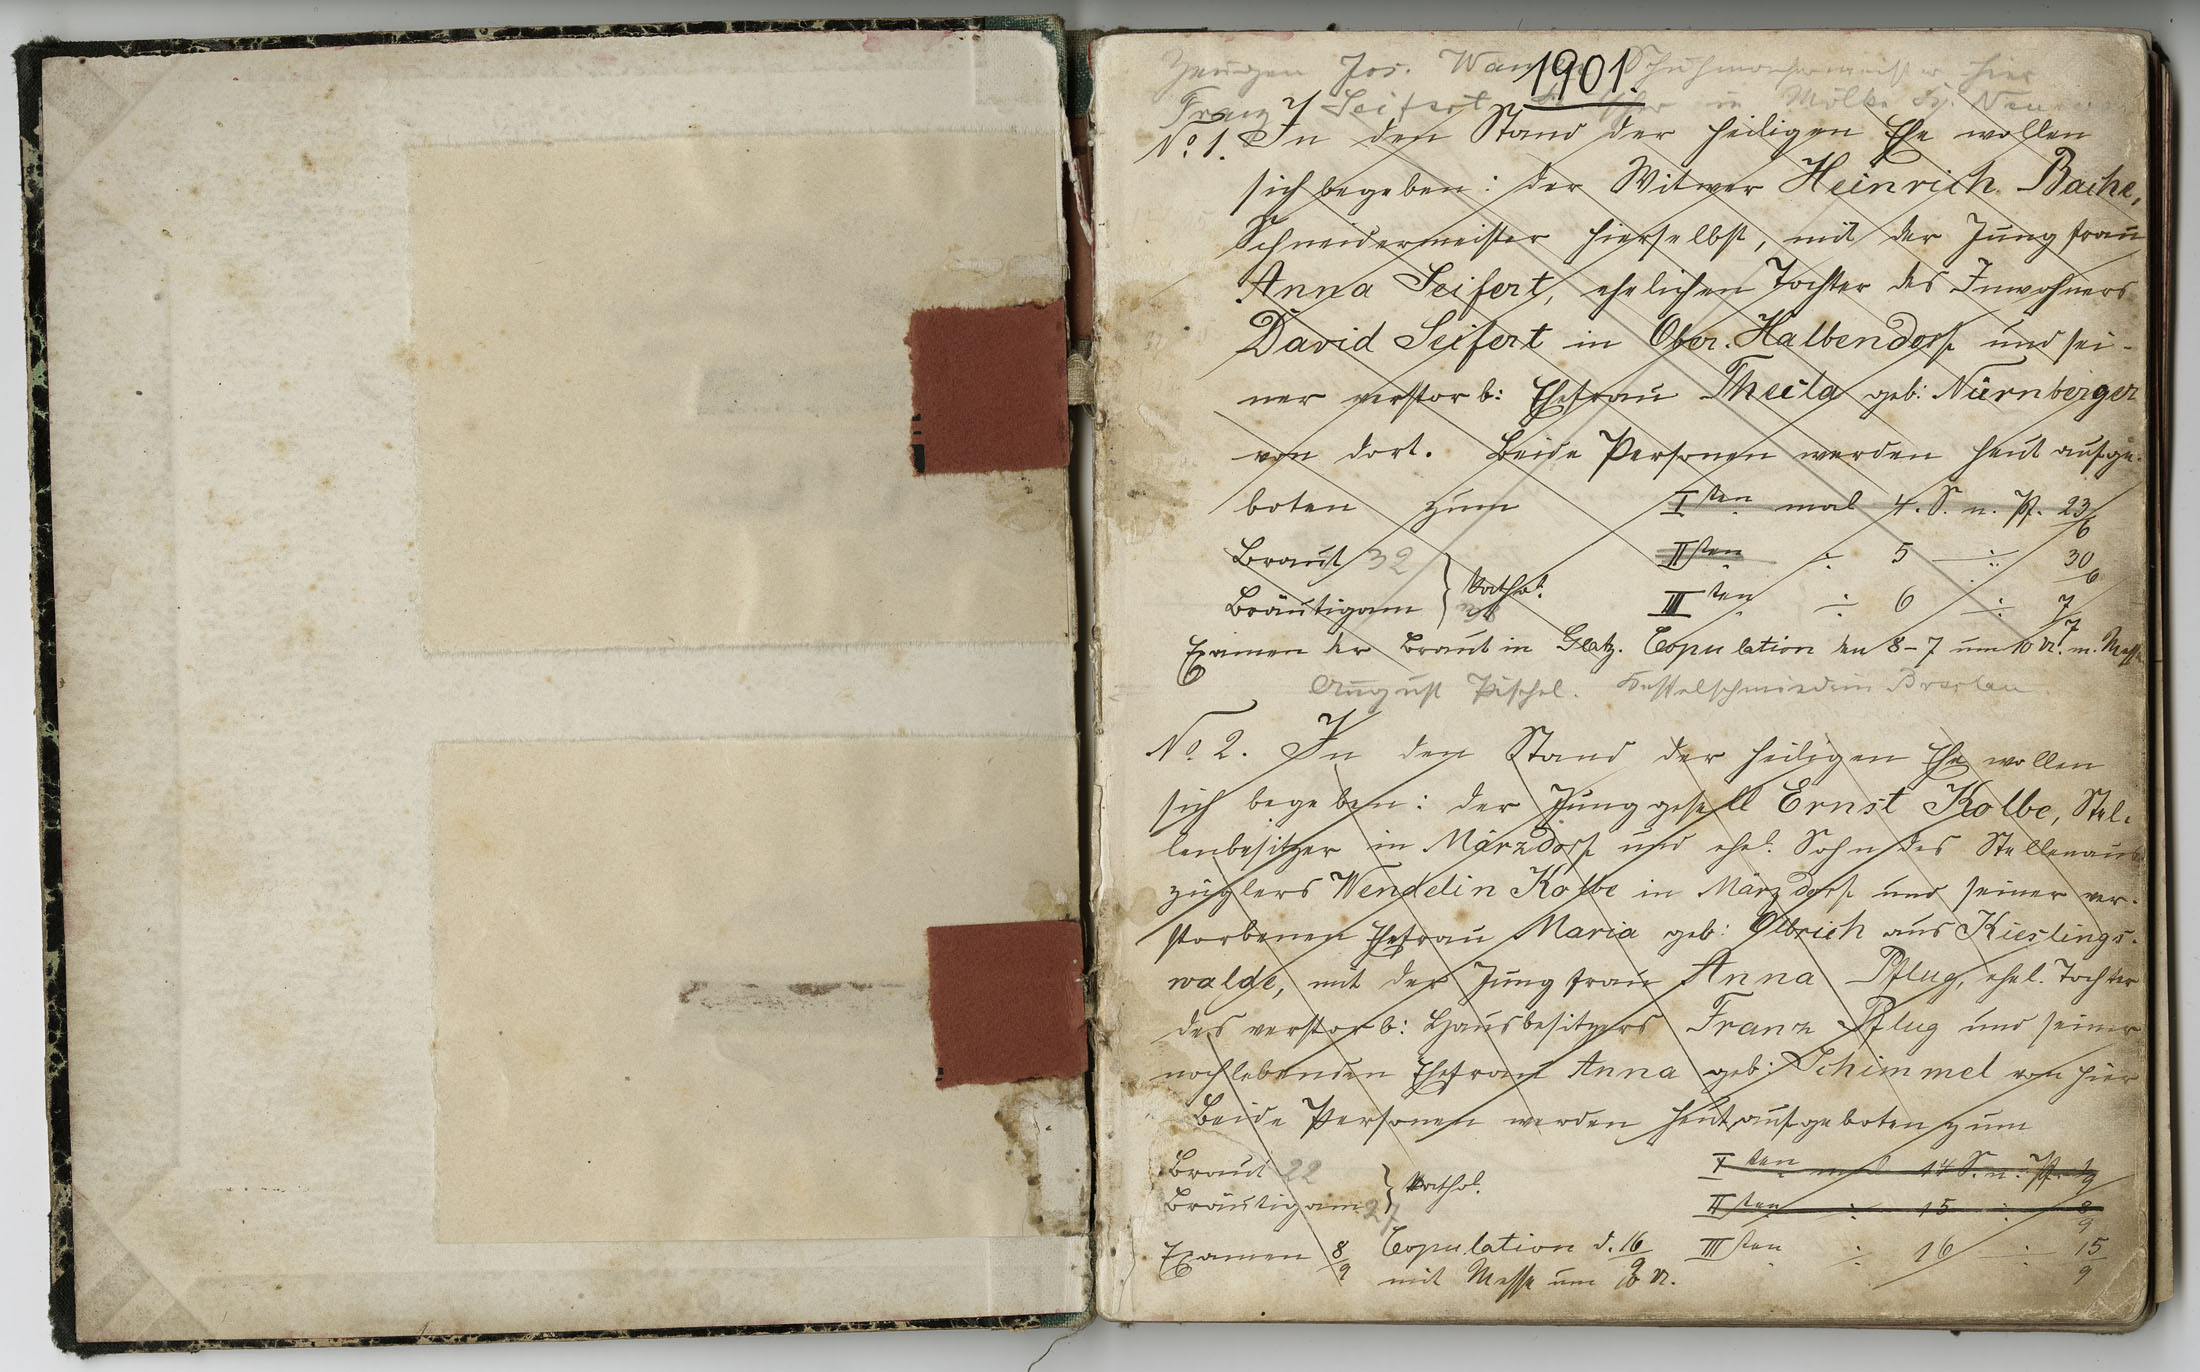 1901.
Zeugen Jos. Schuhmachermeister hier
Franz Seifert in Mölke Kr. Neurode
No. 1. In den Stand der heiligen Ehe wollen
sich begeben: der Witwer Heinrich Bache,
Schneidermeister hierselbst, mit der Jungfrau
Anna Seifert, ehelichen Tochter des Inwohners
David Seifert in Ober. Halbendorf und sei-
ner verstorb: Ehefrau Theila geb: Nürnberger
von dort. Beide Personen werden heut aufge-
boten zum Isten mal 4. S. n. Pf. 23/6
Braut 32 IIten ÷ 5 ÷ 30/6
Bräutigam } kathol. IIIten ÷ 6 ÷ 7/7
Examen der Braut in Glatz. Copulation den 8-7 um 10 U. m. Messe
August Pischel. Kesselschmied in Breslau
No 2. In den Stand der heiligen Ehe wollen
sich begeben: der Junggesell Ernst Kolbe, Stel-
lenbesitzer in Märzdorf und ehel. Sohn des Stellenaus
züglers Wendelin Kolbe in Märzdorf und seiner ver-
storbenen Ehefrau Maria geb: Olbrich aus Kieslings-
walde, mit der Jungfrau Anna Pflug, ehel. Tochter
des verstorb: Hausbesitzers Franz Pflug und seiner
noch lebenden Ehefrau Anna geb: Schimmel von hier
Beide Personen werden heut aufgeboten zum
Braut 22 Iten mal 14 S. n. Pf. 1/9
Bräutigam 27 } kathol. IIten ÷ 15 ÷ 8/9
Examen 8/9 Copulation d. 16/9 IIIten ÷ 16 ÷ 15/9
mit Messe um 10 U.